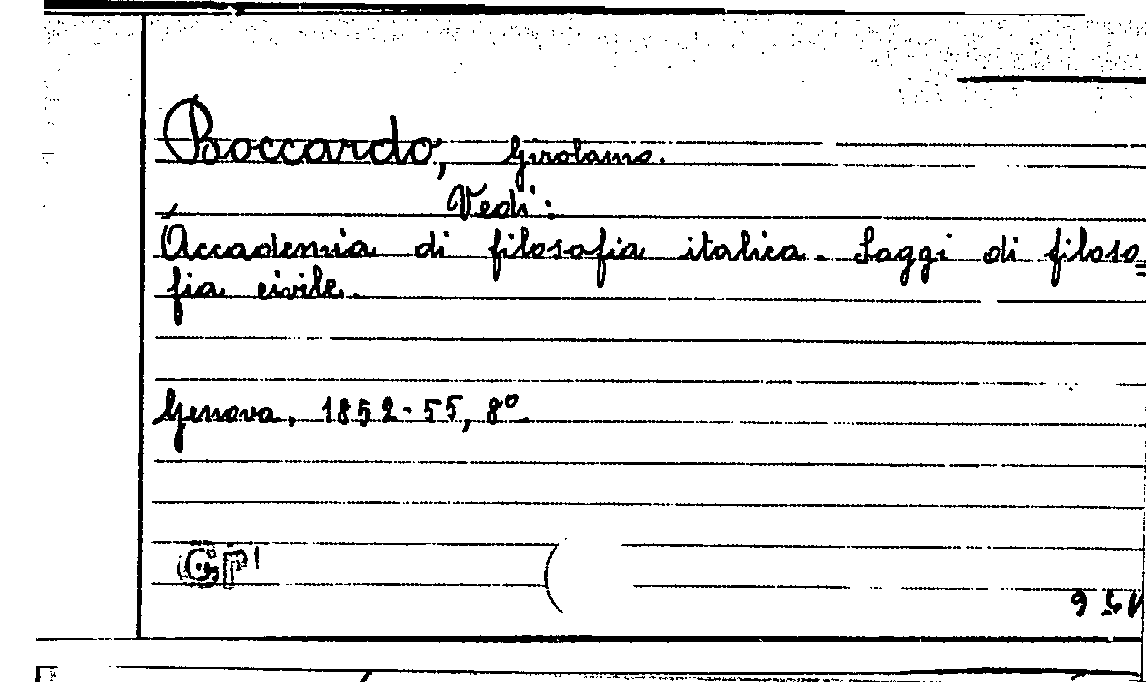 Boccardo, Girolamo.
Vedi:
Accademia di filosofia italica. Saggi di filoso=
fia civile.
Genova, 1852-55, 8º